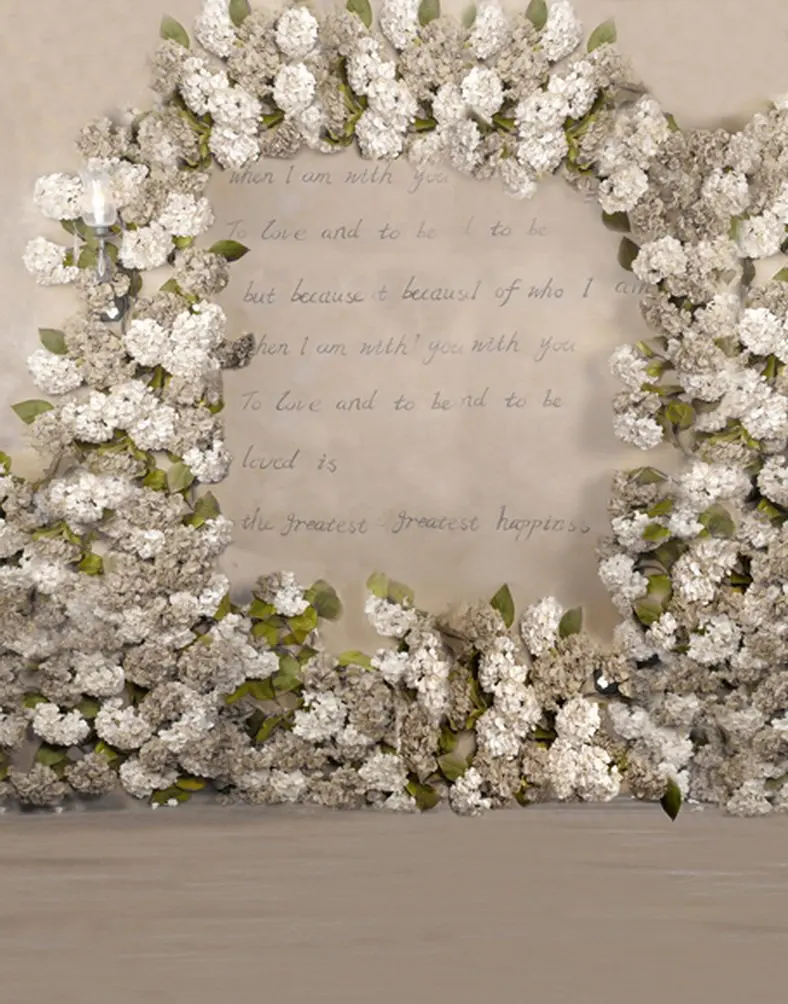 when I am with you
To love and to be d to be
but because t because of who I am
when I am with you with you
To love and to be nd to be
loved is
the greatest greatest happiness